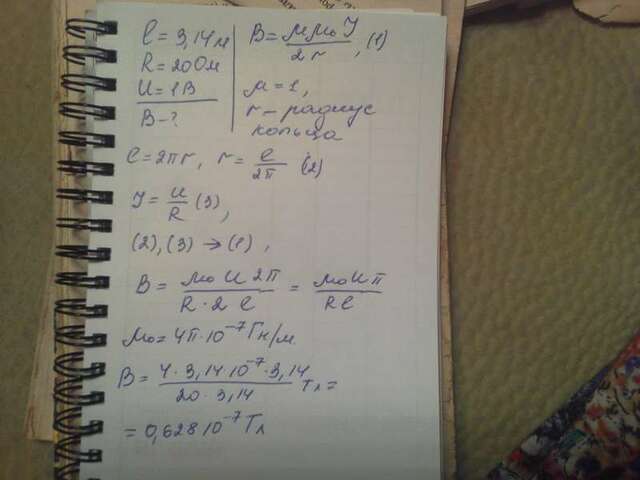 l = 3,14 м
R = 20 Ом
U = 1 В
B - ?
B = μμ₀I / 2r , (1)
μ = 1,
r - радиус
кольца
l = 2πr, r = l / 2π (2)
I = U / R (3),
(2), (3) → (1),
B = μ₀U2π / R·2l = μ₀Uπ / Rl
μ₀ = 4π·10⁻⁷ Гн/м
B = 4·3,14·10⁻⁷·3,14 / 20·3,14 Тл =
= 0,628 10⁻⁷ Тл